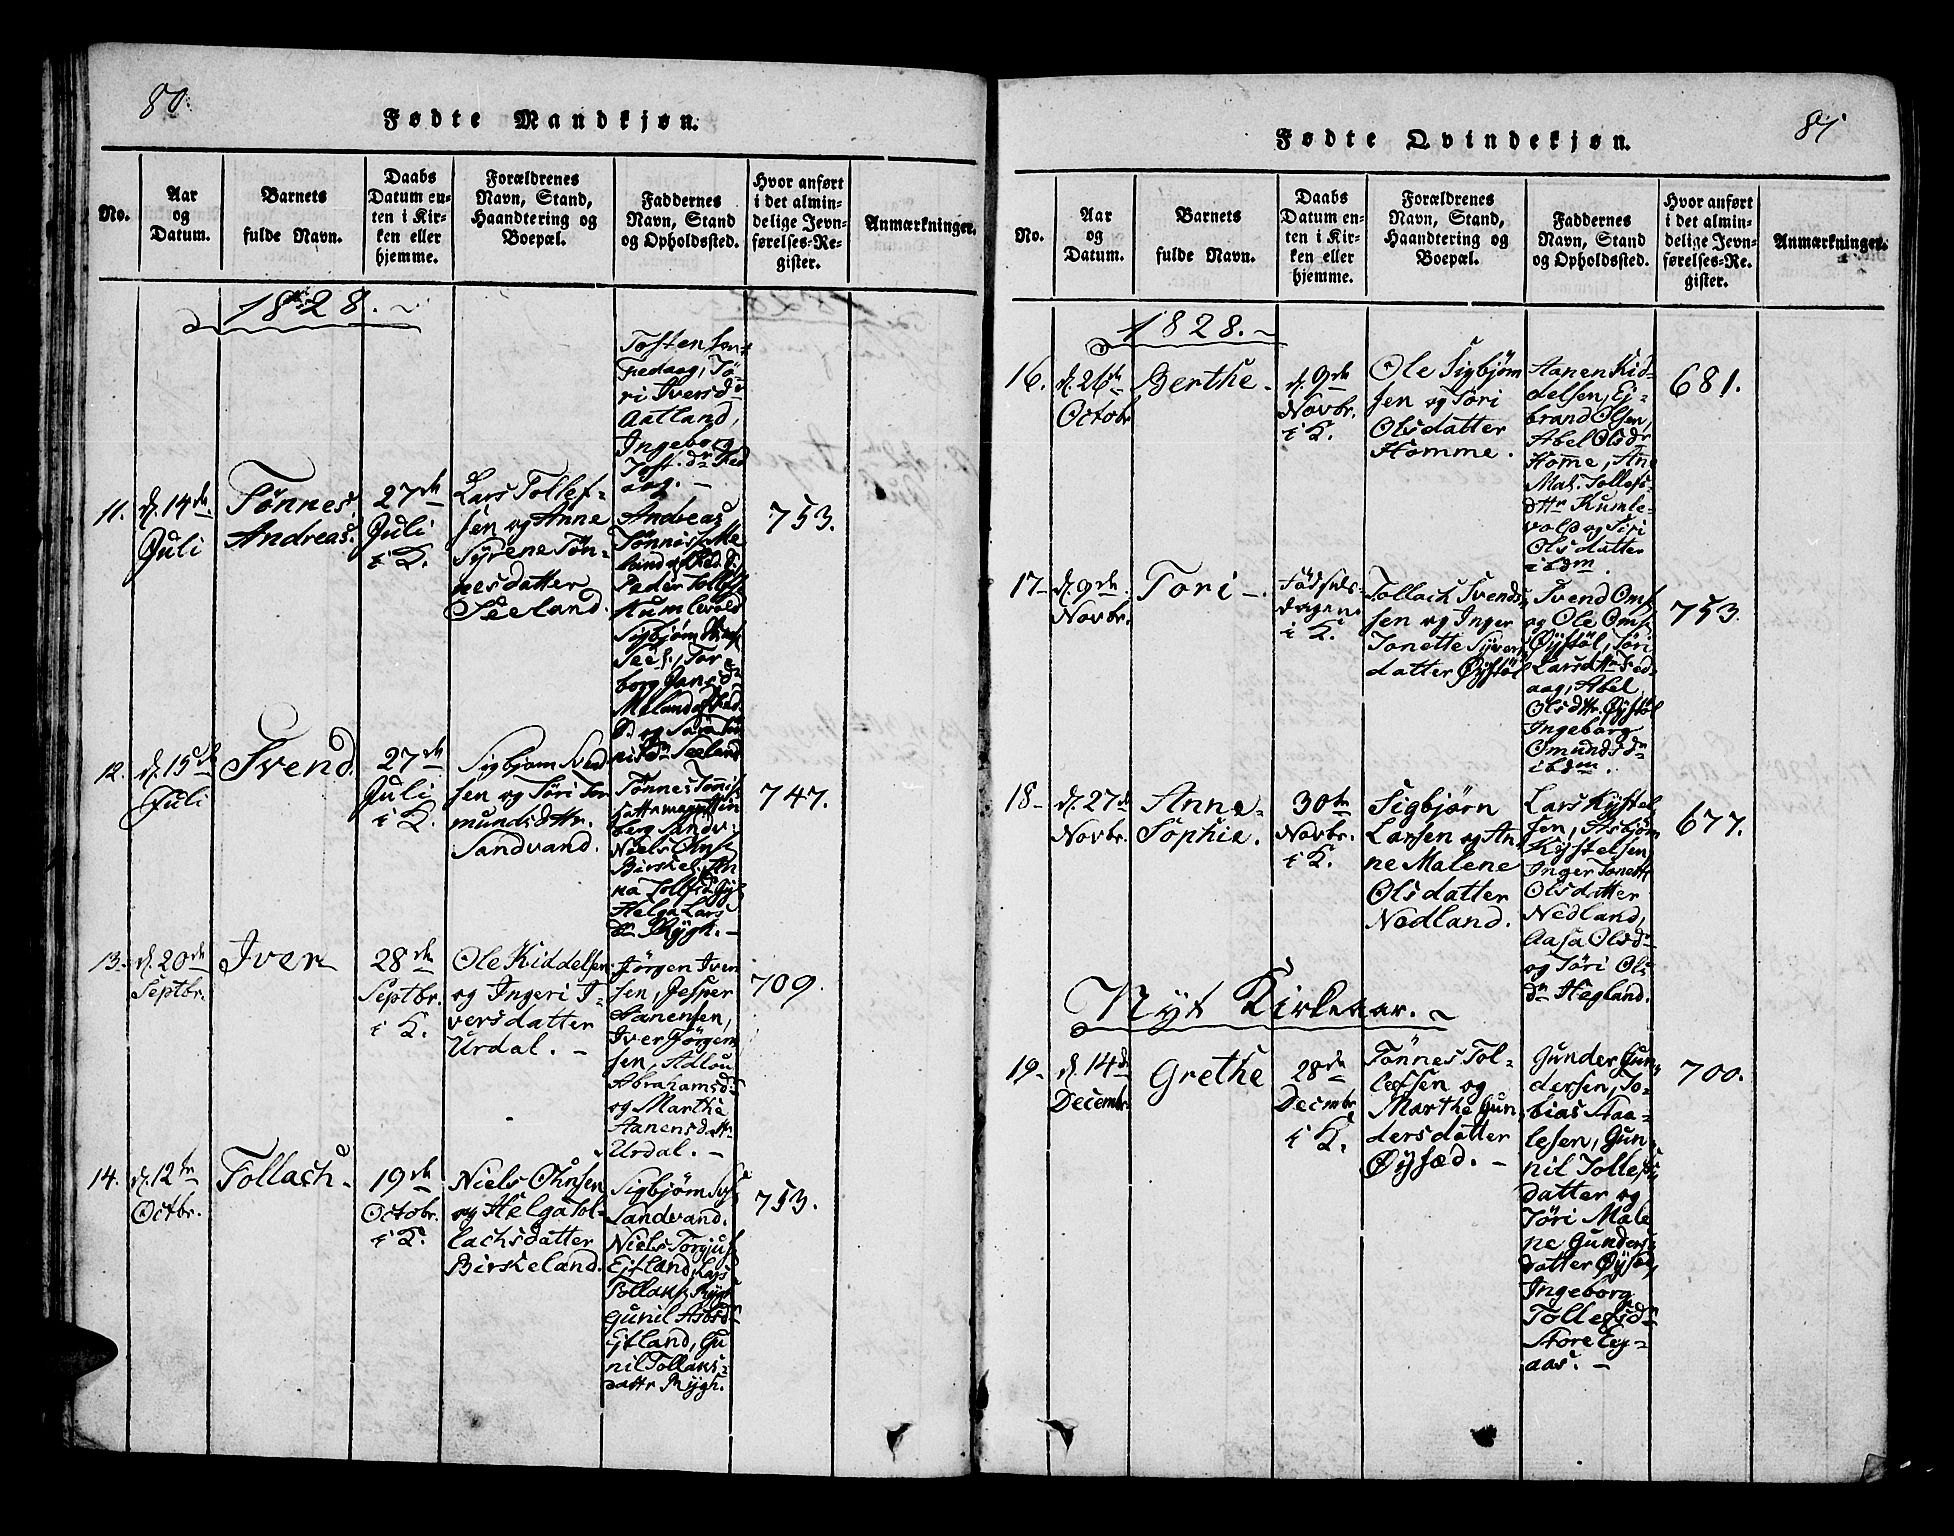 80.
Fødte Mandkjøn.
No.
Aar
og
Datum.
Barnets
fulde Navn.
Daabs
Datum en-
ten i Kir-
ken eller
hjemme.
Forældrenes
Navn, Stand,
Haandtering og
Boepæl.
Faddernes
Navn, Stand
og Opholdssted.
Hvor anført
i det almin-
delige Jevn-
førelses-Re-
gister.
Anmærkninger.
1828.
Tosten
Fedaag, Tö-
ri Iversd
Aatland,
Ingeborg
Tost. dr Fed
aag. -
11.
d. 14de
Juli
Tönnes
Andreas.
27de
Juli
i K.
Lars Tollef-
sen og Anne
Syrene Tön-
nesdatter
Seeland.
Andreas
Peder Tollefs
Kumlevold
Sigbjørn
Seel., Tor-
borg
og Sara
Seeland
753.
12.
d. 15de
Juli
Svend.
27de
Juli
i K.
Sigbjørn Svend
sen og Töri Tor
mundsdttr.
Sandvand.
Tönnes
berg Sandv.
Niels Ohns
Birkel.
Helga Lars
dr Rygh. -
747.
13.
d. 20de
Septbr.
Iver
28de
Septbr.
i K.
Ole Kiddelsen
og Ingeri I-
versdatter
Urdal. -
Jörgen Iver
sen, Jesper
Aanensen,
Iver Jörgen
sen, Adlou
Abrahamsd
og Marthe
Aanensdttr
Urdal. -
709.
14.
d. 12te
Octbr.
Tollach
19de
Octobr.
i K.
Niels Ohnsen
og Helga Tol-
lachsdatter
Birkeland.
Sigbjørn
Sandvand.
Niels Torgjus
Ejtland, Lars
Tollaks Rygh
Gunil
Ejtland, Gu
nil Tollaks-
dattr Rygh.
753.
81
Fødte Qvindekjøn.
No.
Aar
og
Datum.
Barnets
fulde Navn.
Daabs
Datum en-
ten i Kir-
ken eller
hjemme.
Forældrenes
Navn, Stand,
Haandtering og
Boepæl.
Faddernes
Navn, Stand
og Opholdssted.
Hvor anført
i det almin-
delige Jevn-
førelses-Re-
gister.
Anmærkninger.
1828.
16.
d. 26de
Octobr
Berthe.
d. 9de
Novbr.
i K.
Ole Sigbjørn
sen og Töri
Olsdatter
Homme.
Aanen Kid-
delsen, Ej-
brand Olsen,
Abel Olsdr
Home, Ane
Mal. Tollefs
dttr Kumle-
vold og Siri
Olsdatter
ibdm.
681.
17-
d. 9de
Novbr.
Tori -.
Födsels-
dagen
i K.
Tollach Svends-
sen og Inger
Tonette Syver
datter Øystöl
Svend Oms
og Ole Oms
Øystöl, Töri
Larsdttr Fed-
aag, Abel
Olsdttr. Øystöl
Ingeborg
Omundsdr
ibdm.
753.
18-
d. 27de
Novbr.
Anne
Sophie.
30te
Novbr.
i K.
Sigbjörn
Larsen og An
ne Malene
Olsdatter
Nedland.
Lars Kystel
sen, Asbjørn
Kystelsen,
Inger Tonett
Olsdatter
Nedland,
Aasa Olsd-
og Töri Ols
dr Hegland.
677.
Nyt Kirkeaar.
19-
d. 14de
Decembr.
Grethe
28de
Decmbr.
i K.
Tönnes Tol-
lefsen og
Marthe Gun
dersdatter
Øysæd. -
Gunder Gun-
dersen, To-
bias Staa-
lesen, Gun-
nil Tollefs-
datter og
Töri Male
ne Gunders-
datter Øysæd,
Ingeborg
Tollefsd-
Store Eg-
aas. -
700.